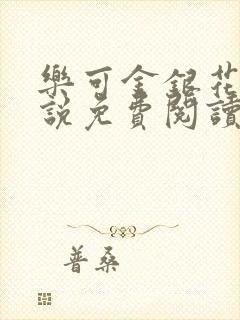 樂可金銀花
說免費閱讀
普桑